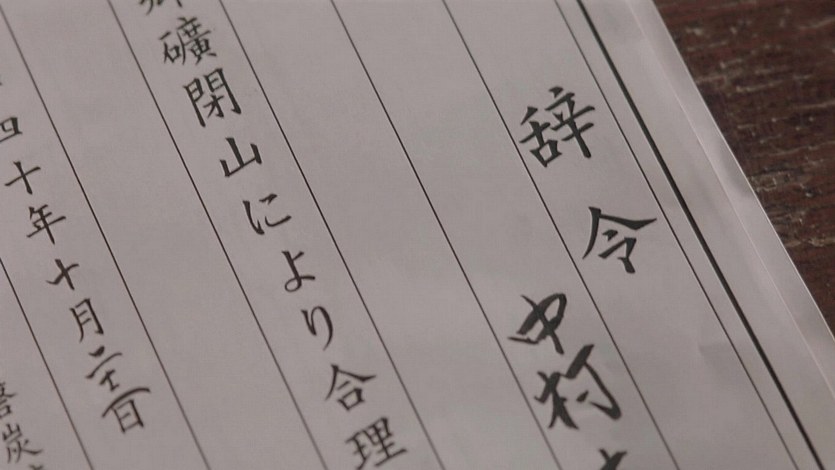 辞令
中村
礦閉山により合理
四十年十月二十一日
炭